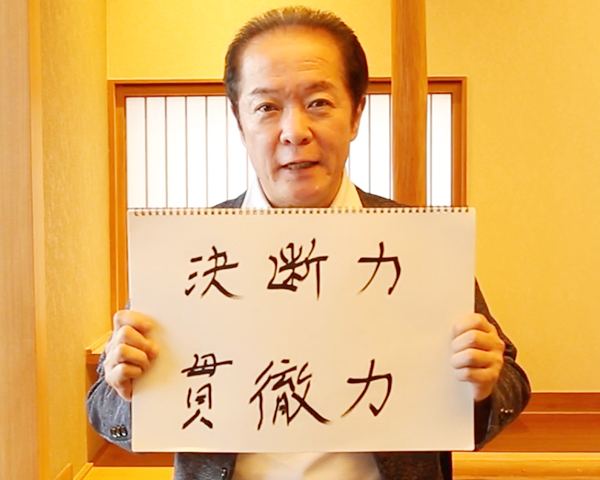 決断力
貫徹力